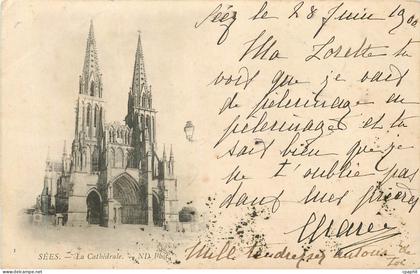 Séez le 28 Juin 1900
Ma Lorette tu
vois que je vais
de pèlerinage en
pèlerinages et tu
sais bien que je
ne t'oublie pas
dans mes prières
Marie
Mille tendresses autour de
toi
1 SÉES. - La Cathédrale. - ND Phot.